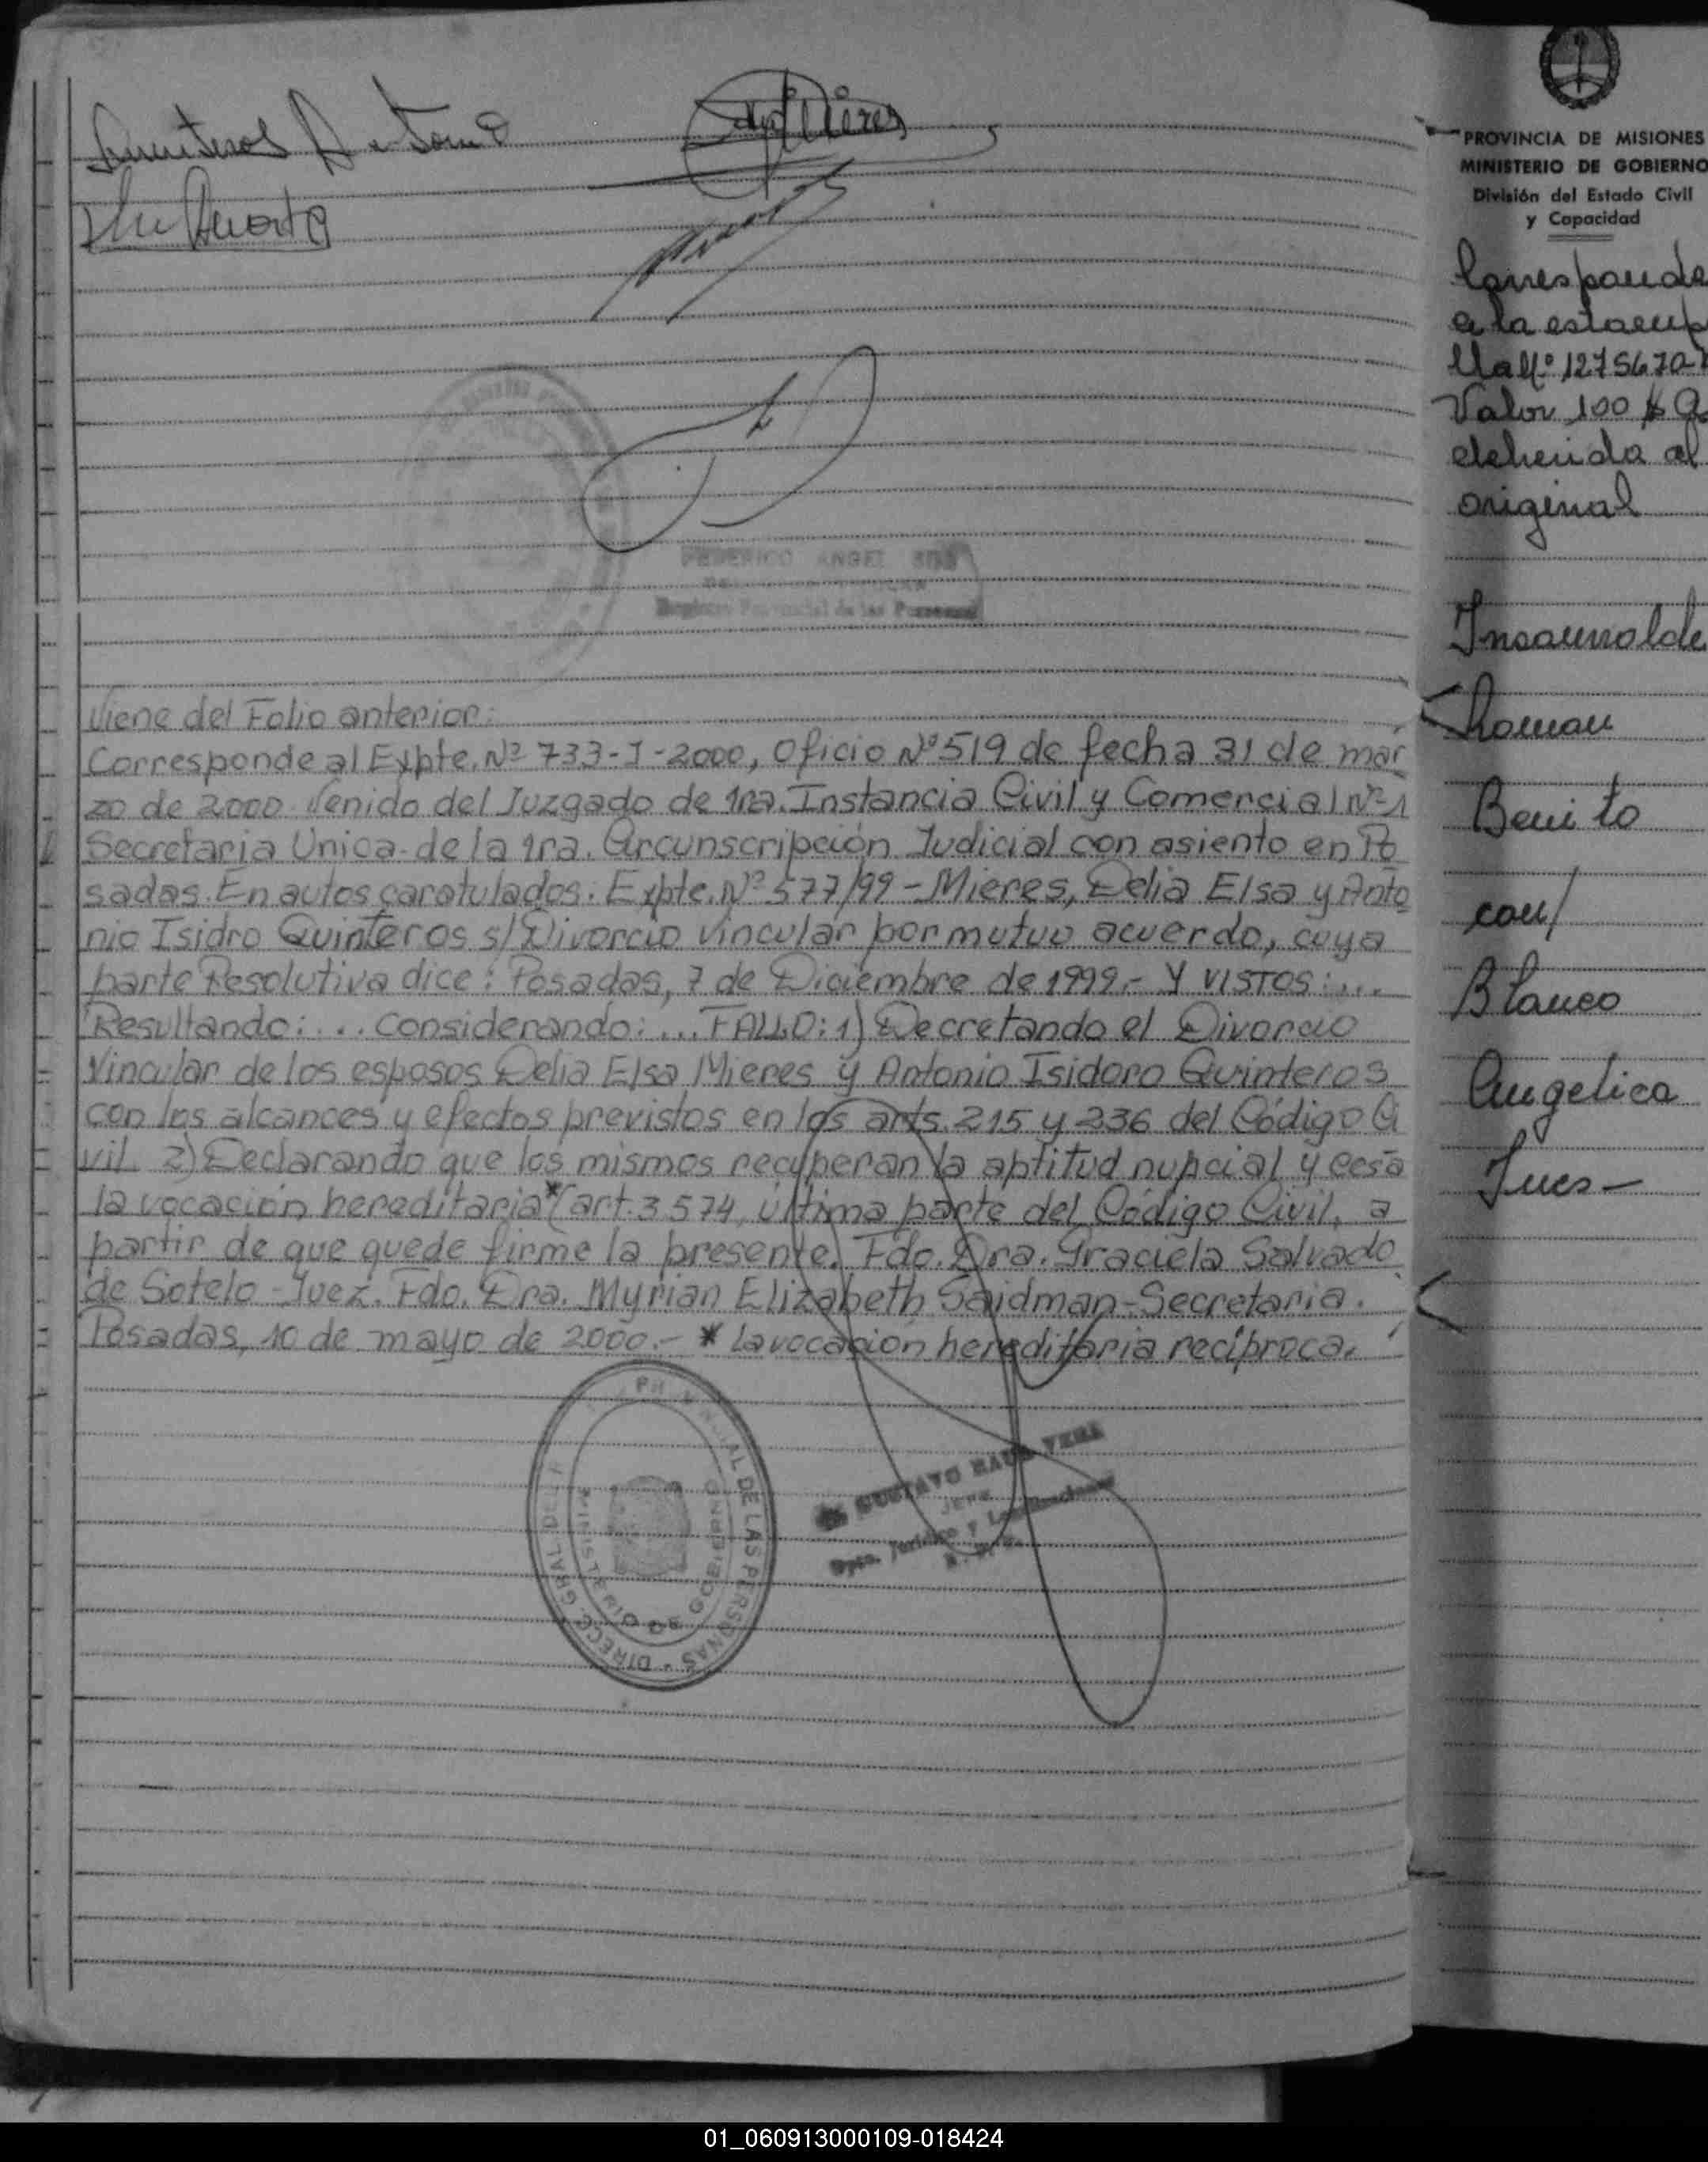 Quinteros Antonio
Mieres
Viene del Folio anterior:
Corresponde al Expte. Nº 733-J-2000, Oficio Nº 519 de fecha 31 de mar
zo de 2000. Venido del Juzgado de 1ra. Instancia Civil y Comercial Nº 1
Secretaria Unica de la 1ra. Circunscripción Judicial con asiento en Po
sadas. En autos caratulados: Expte. Nº 577/99 - Mieres, Delia Elsa y Anto
nio Isidro Quinteros s/Divorcio vincular por mutuo acuerdo, cuya
parte Resolutiva dice: Posadas, 7 de Diciembre de 1999.- Y VISTOS:...
Resultando:... Considerando:... FALLO: 1) Decretando el Divorcio
Vincular de los esposos Delia Elsa Mieres y Antonio Isidoro Quinteros
con los alcances y efectos previstos en los arts. 215 y 236 del Código Ci
vil. 2) Declarando que los mismos recuperan la aptitud nupcial y cesa
la vocación hereditaria * (art. 3574, última parte del Código Civil, a
partir de que quede firme la presente. Fdo. Dra. Graciela Salvado
de Sotelo - Juez. Fdo. Dra. Myrian Elizabeth Saidman - Secretaria.
Posadas, 10 de mayo de 2000.- * la vocación hereditaria recíproca.
FEDERICO ANGEL
Registro Provincial de las Personas
DE LAS PERSONAS - DIRECC. GRAL DEL
MINISTERIO DE GOBIERNO
GUSTAVO RAUL VERA
JEFE
Dpto. Jurídico y
PROVINCIA DE MISIONES
MINISTERIO DE GOBIERNO
División del Estado Civil
y Capacidad
Corresponde
a la estamp
lla Nº 1275670
Valor 100 $
dherida al
original
Insaurralde
Roman
Benito
con/
Blanco
Angelica
Ines-
01_060913000109-018424